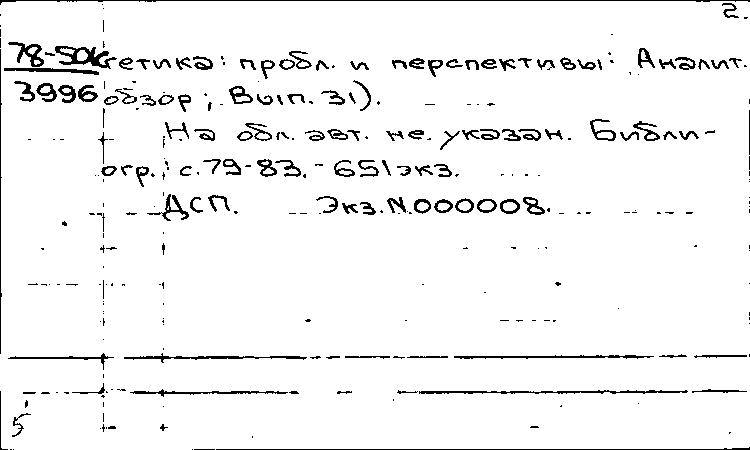 2.
78-50к гетика: пробл. и перспективы: Аналит.
3996 обзор; Вып. 31).
На обл. авт. не. указан. Библи-
огр.: с. 79-83. - 651экз.
ДСП. Экз. N000008.
5